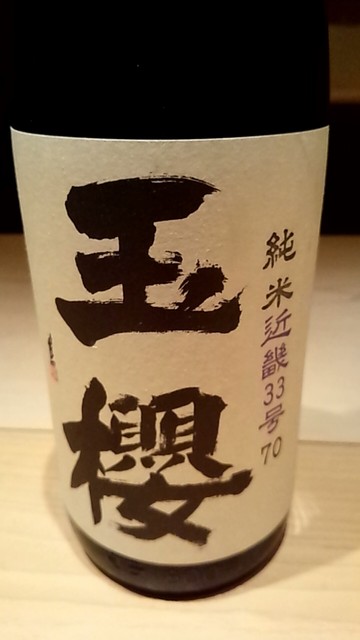 純米近畿33号70
玉櫻